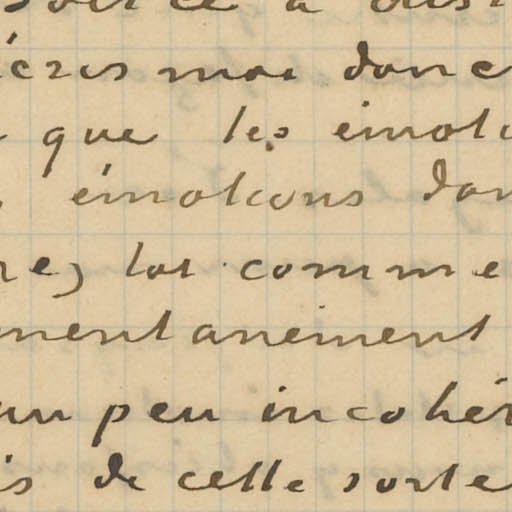 écris moi donc
que les émoti
émotions don
re, toi comme
mentanément
un peu incohér
is de cette sorte